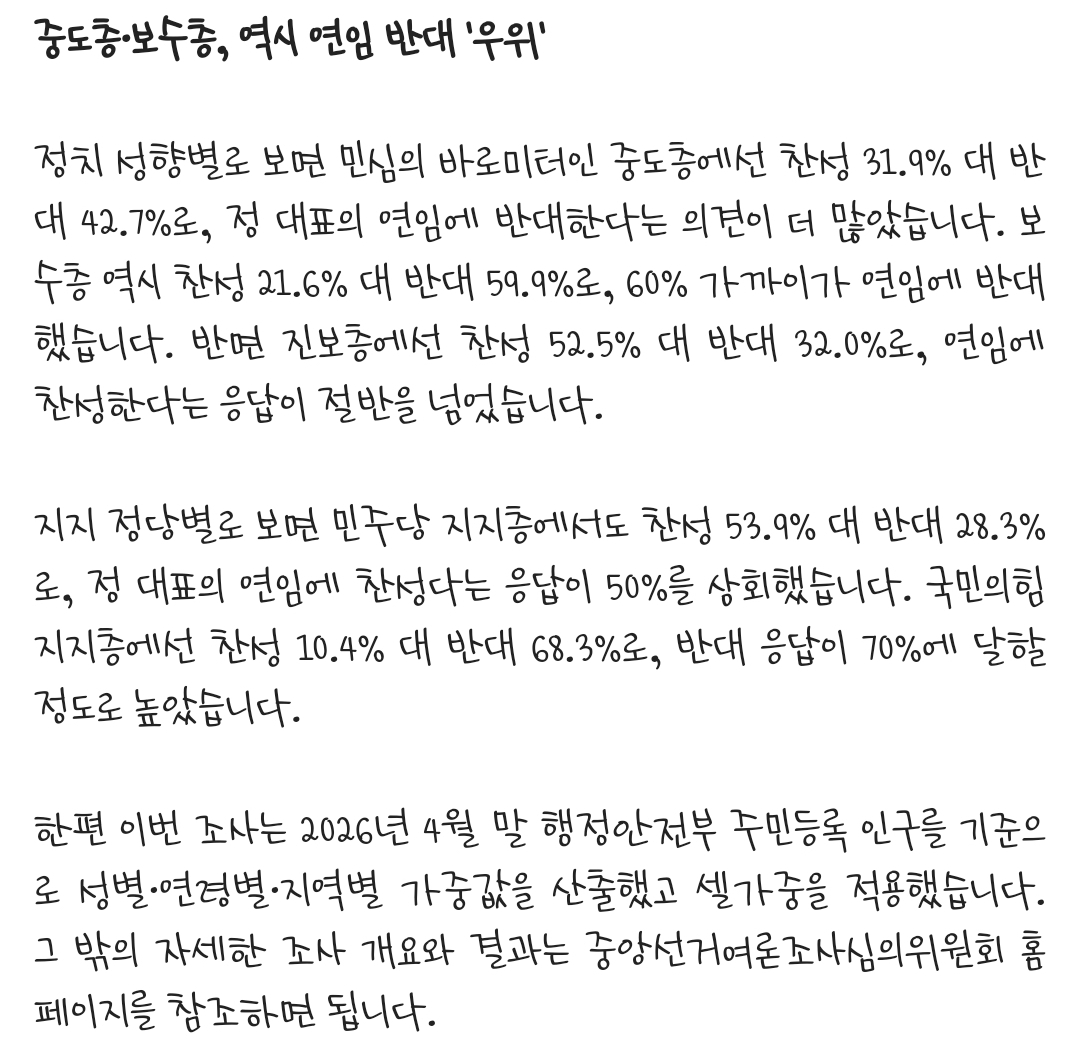 중도층·보수층, 역시 연임 반대 '우위'
정치 성향별로 보면 민심의 바로미터인 중도층에선 찬성 31.9% 대 반
대 42.7%로, 정 대표의 연임에 반대한다는 의견이 더 많았습니다. 보
수층 역시 찬성 21.6% 대 반대 59.9%로, 60% 가까이가 연임에 반대
했습니다. 반면 진보층에선 찬성 52.5% 대 반대 32.0%로, 연임에
찬성한다는 응답이 절반을 넘었습니다.
지지 정당별로 보면 민주당 지지층에서도 찬성 53.9% 대 반대 28.3%
로, 정 대표의 연임에 찬성다는 응답이 50%를 상회했습니다. 국민의힘
지지층에선 찬성 10.4% 대 반대 68.3%로, 반대 응답이 70%에 달할
정도로 높았습니다.
한편 이번 조사는 2026년 4월 말 행정안전부 주민등록 인구를 기준으
로 성별·연령별·지역별 가중값을 산출했고 셀가중을 적용했습니다.
그 밖의 자세한 조사 개요와 결과는 중앙선거여론조사심의위원회 홈
페이지를 참조하면 됩니다.